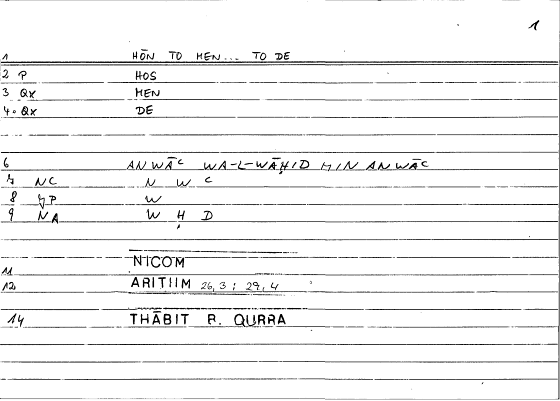 1
1 HŌN TO MEN... TO DE
2 P HOS
3 Qx MEN
4. Qx DE
6 ANWĀC WA-L-WĀḤID MIN ANWĀC
7 NC N W C
8 W
9 NA W Ḥ D
NICOM
11
12 ARITHM 26,3 ; 29,4
14 THĀBIT B. QURRA